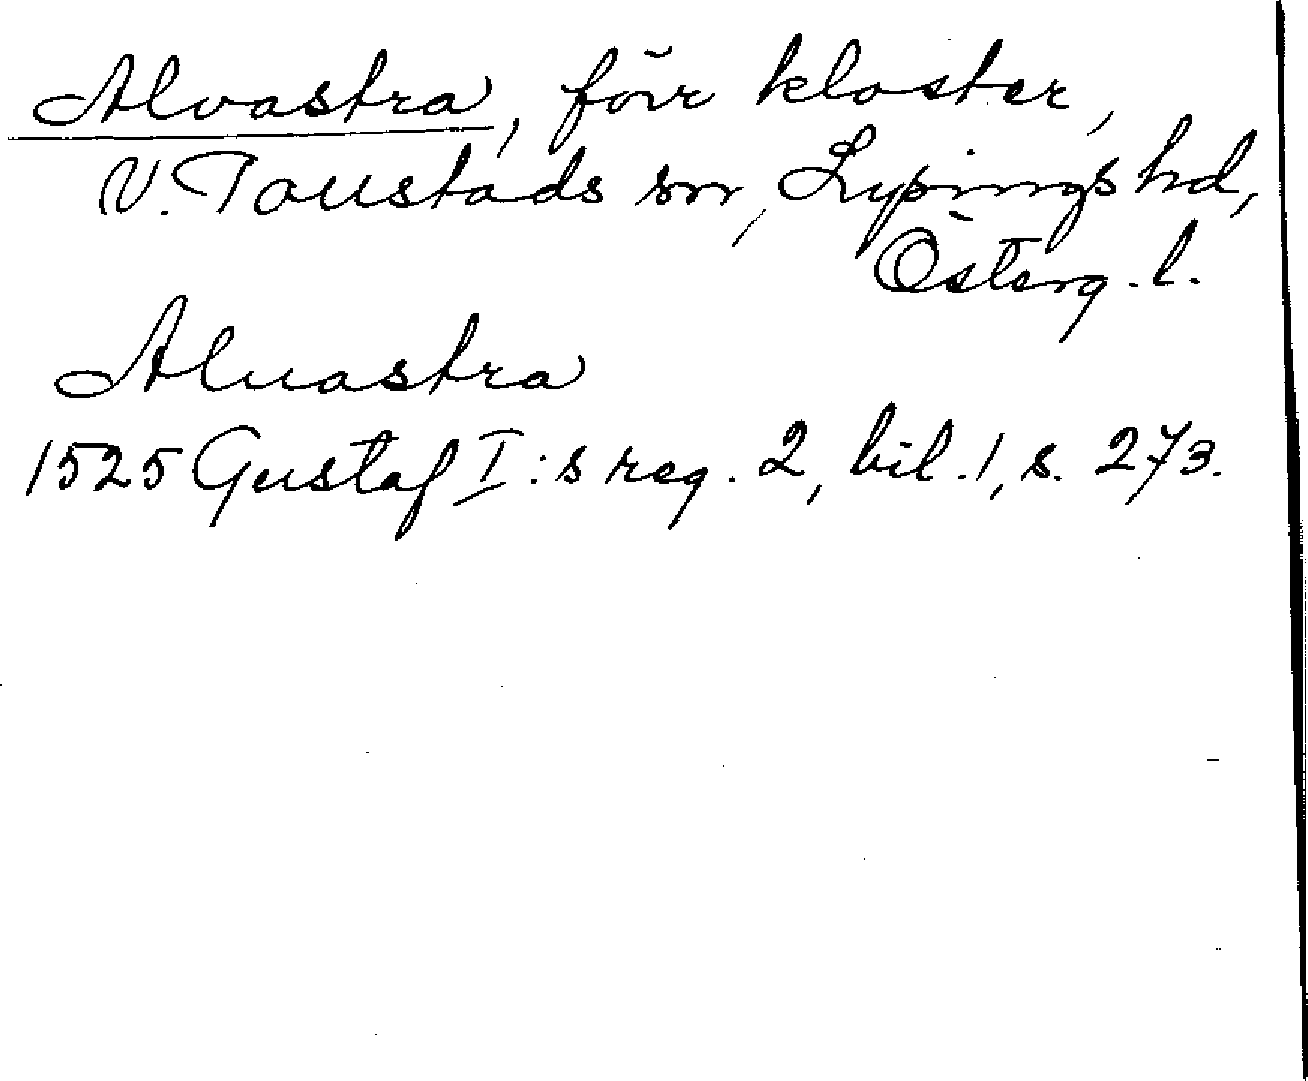 Alvastra, förr kloster,
V. Tollstads sn, Lysings hd,
Österg. l.
Aluastra
1525 Gustaf I:s reg. 2, bil. 1, s. 273.